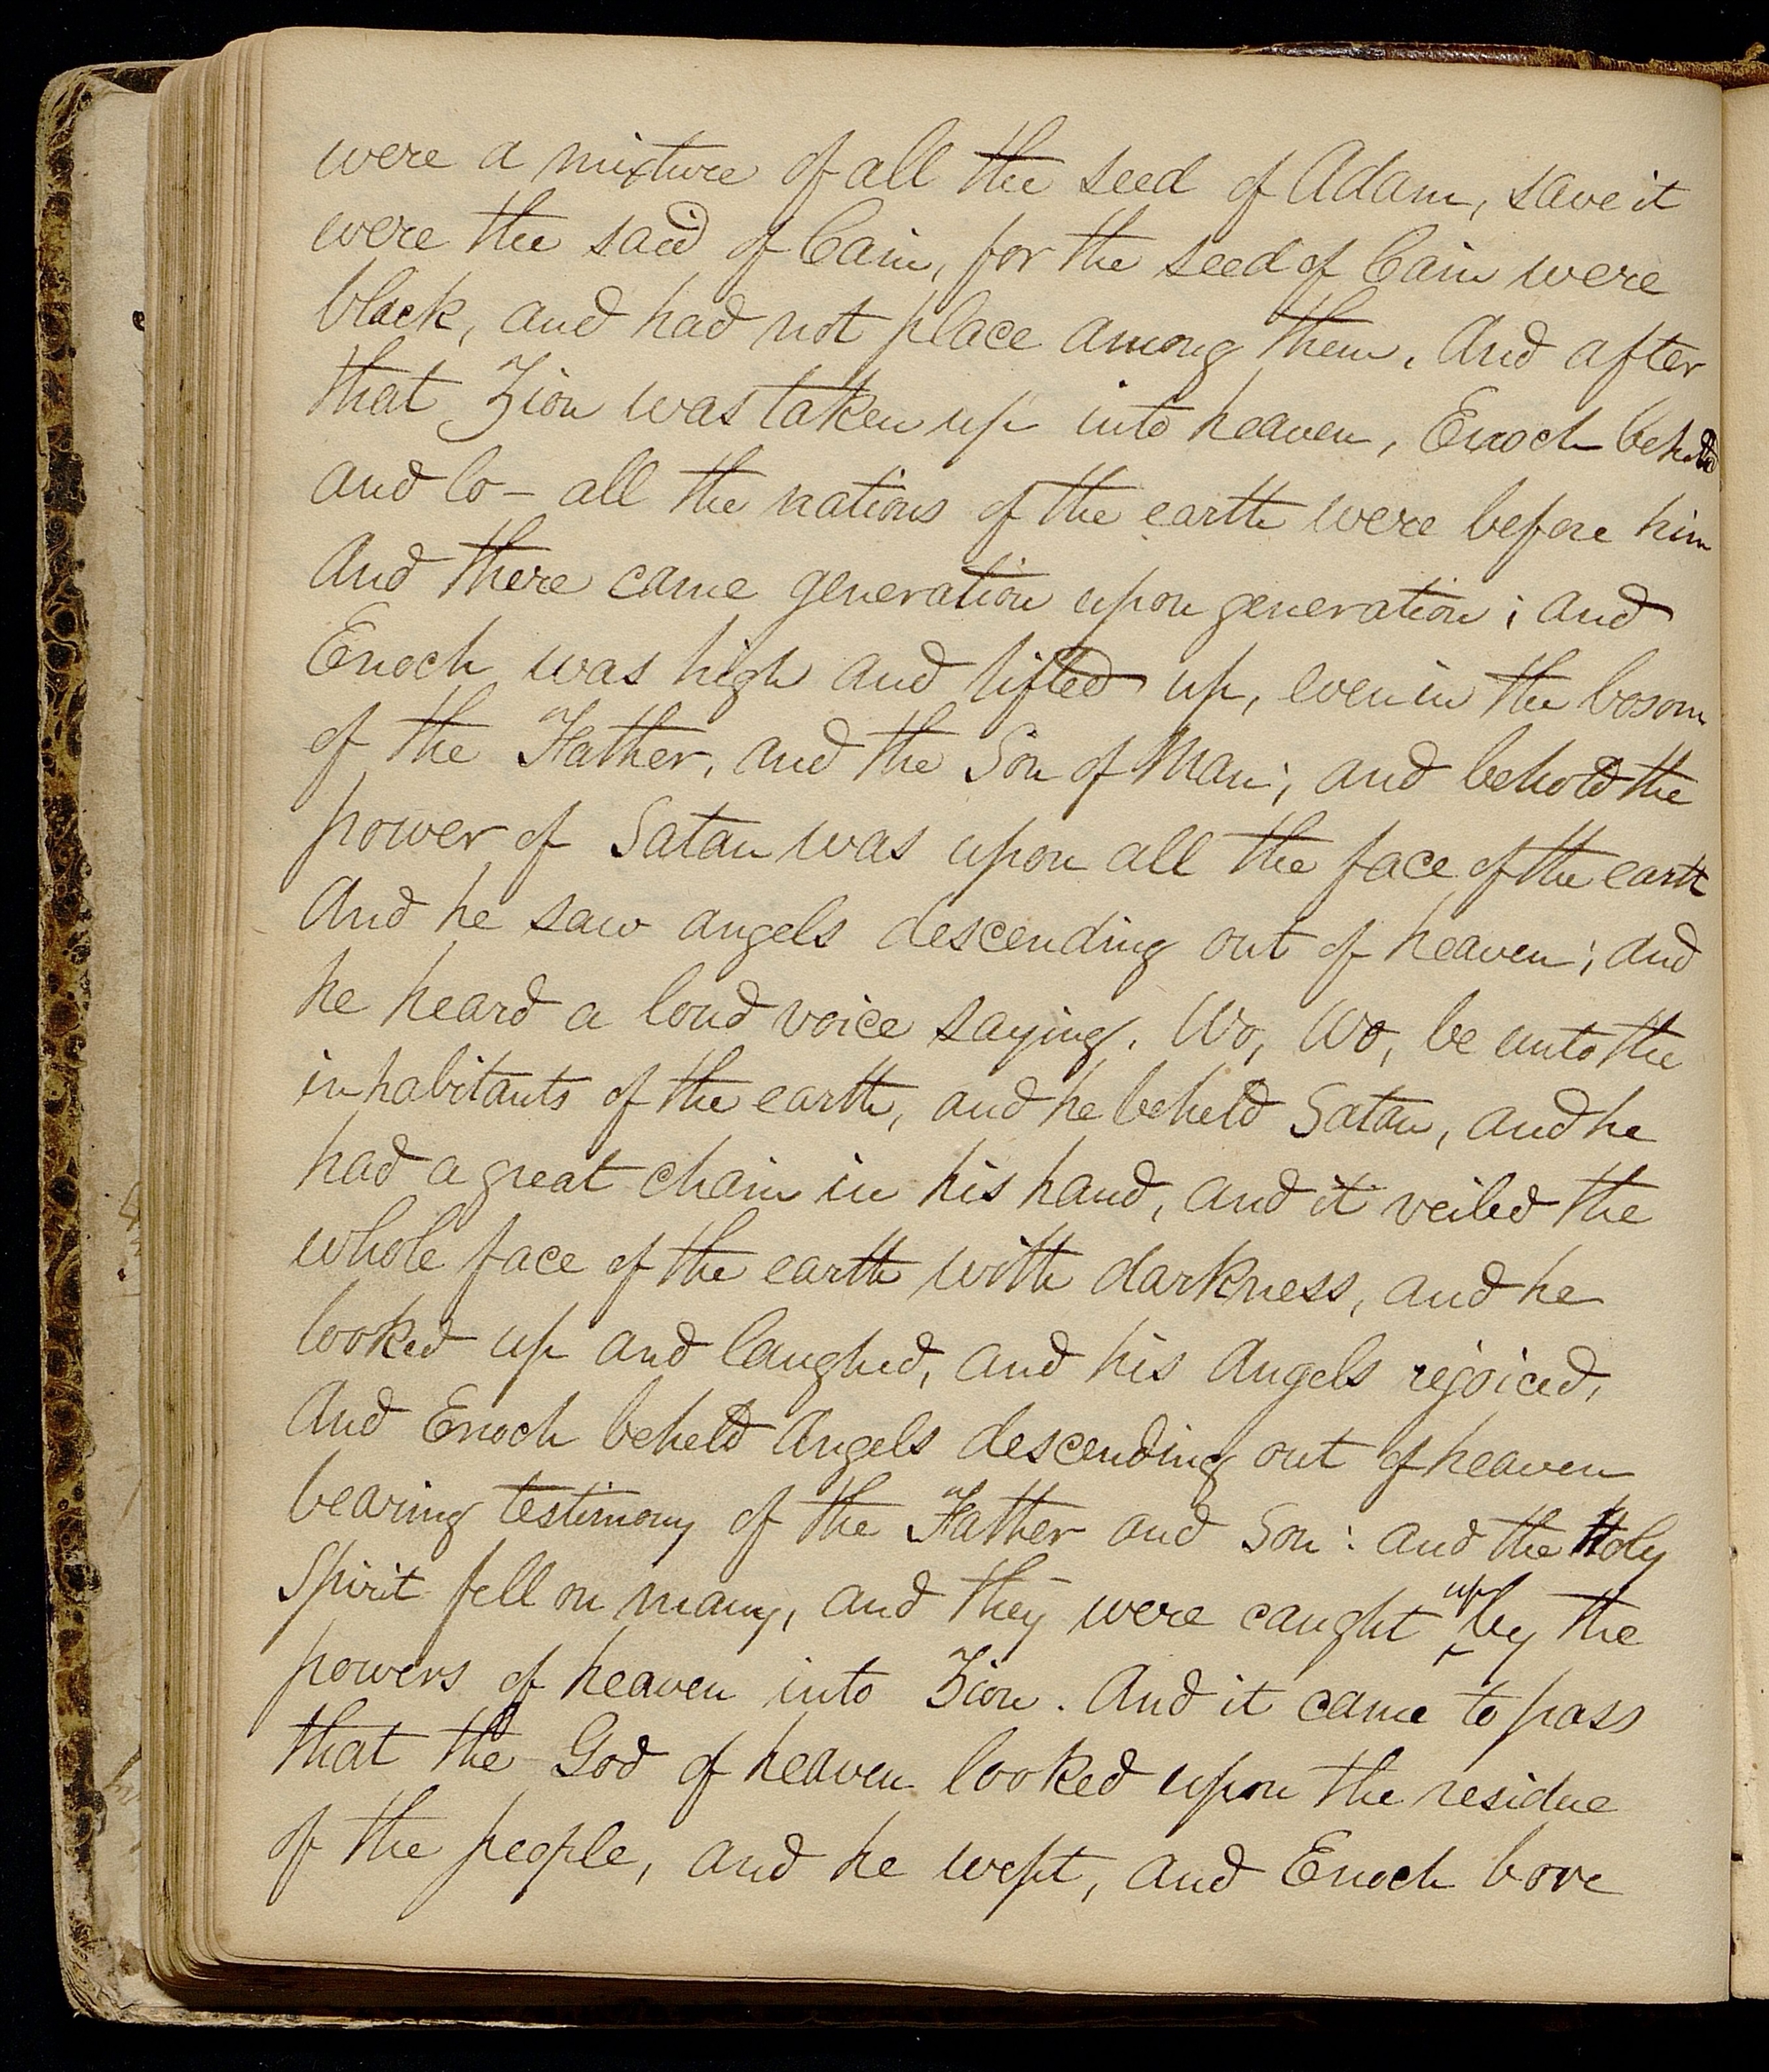 were a mixture of all the seed of Adam, save it
were the said of Cain, for the seed of Cain were
black, and had not place among them. And after
that Zion was taken up into heaven, Enoch beheld
and lo – all the nations of the earth were before him
And there came generation upon generation; and
Enoch was high and lifted up, even in the bosom
of the Father, and the Son of Man; and behold the
power of Satan was upon all the face of the earth
And he saw angels descending out of heaven; and
he heard a loud voice saying. Wo, Wo, be unto the
inhabitants of the earth, and he beheld Satan, and he
had a great chain in his hand, and it veiled the
whole face of the earth with darkness, and he
looked up and laughed, and his Angels rejoiced,
And Enoch beheld Angels descending out of heaven
bearing testimony of the Father and Son: and the Holy
Spirit fell on many, and they were caught up by the
powers of heaven into Zion. And it came to pass
that the God of heaven looked upon the residue
of the people, and he wept, and Enoch bore